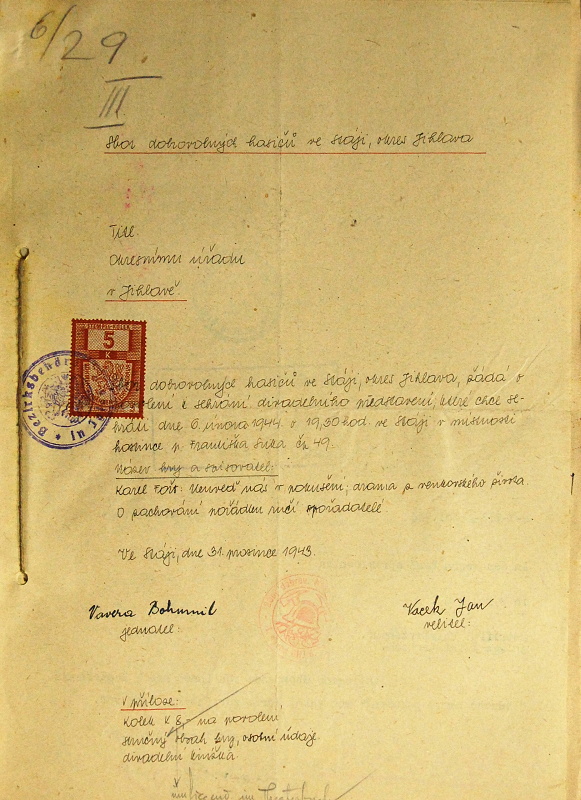 6/29
III
Sbor dobrovolných hasičů ve Stáji, okres Jihlava
Tit.
Okresnímu úřadu
v Jihlavě.
STEMPEL-KOLEK
5
K
Bezirksbehörde
in
dobrovolných hasičů ve Stáji, okres Jihlava, žádá o
povolení k sehrání divadelního představení, které chce se-
hráti dne 6. února 1944 v 19,30 hod. ve Stáji v místnosti
hostince p. Františka čp. 49.
Název hry a spisovatel:
Karel Fořt: Neuveď nás v pokušení, drama z venkovského života.
O zachování pořádku ručí pořadatelé.
Ve Stáji, dne 31. prosince 1943.
Vavera Bohumil
jednatel:
Vacek Jan
velitel:
V příloze:
Kolek K 8,- na povolení
stručný obsah hry, osobní údaje
divadelní knížka.